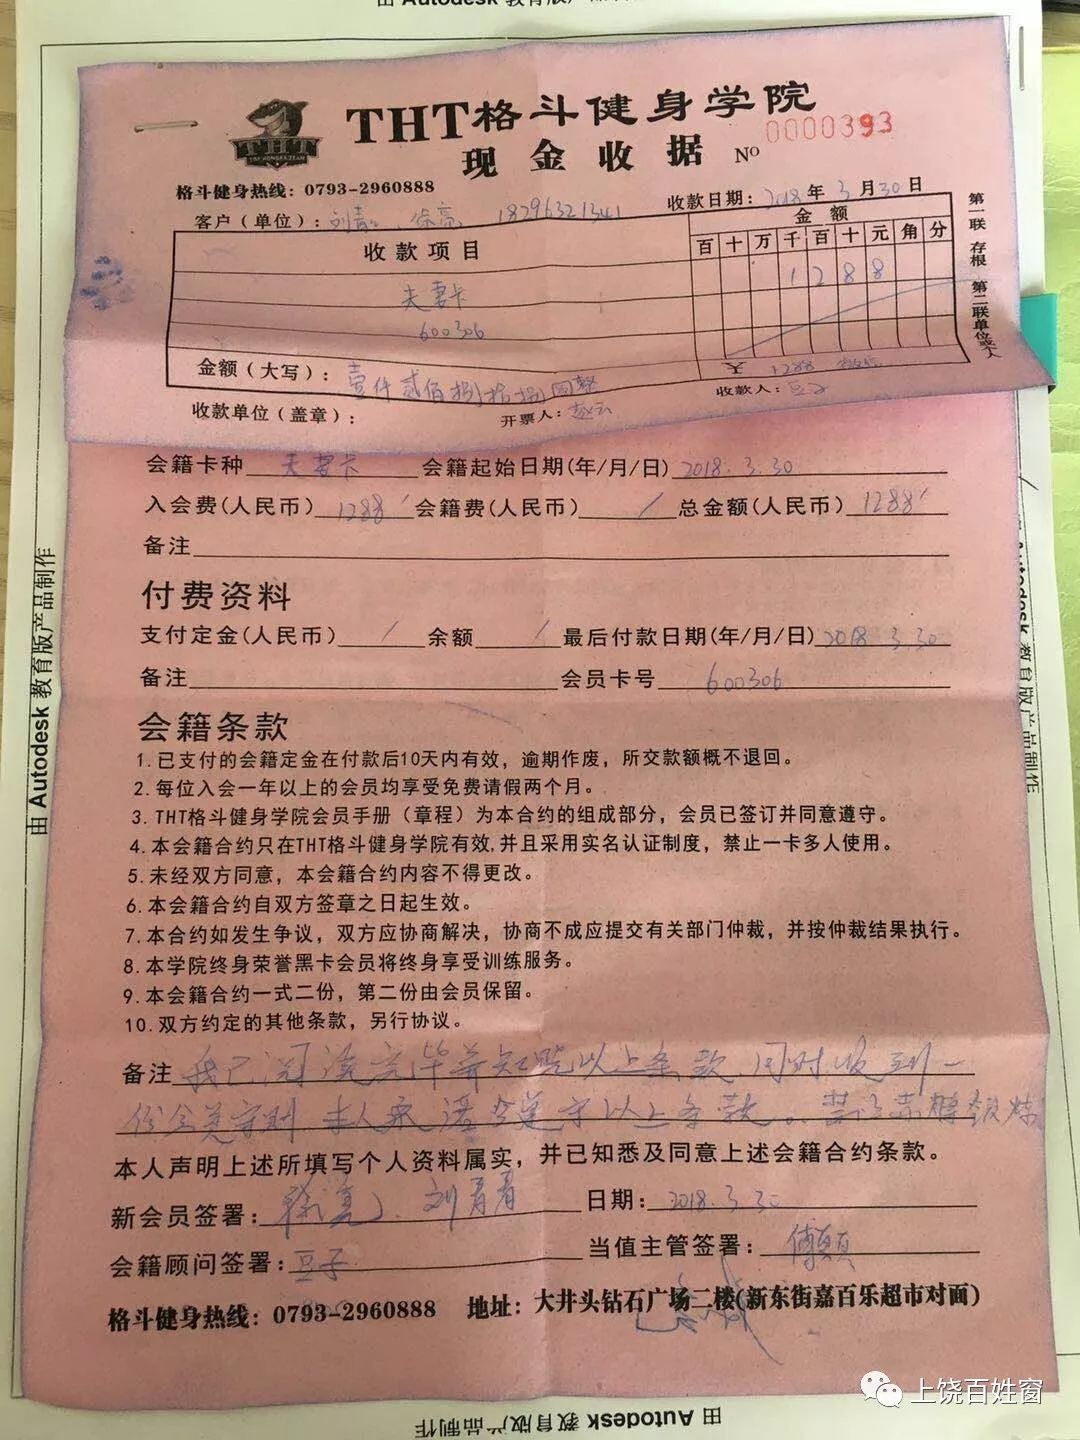 由 Autodesk 教育版产品制作
THT
THT格斗健身学院
现金收据 No 0000393
格斗健身热线：0793-2960888
收款日期：2018年3月30日
客户（单位）：刘青 徐亮 18296321341
收款项目 金额
百 十 万 千 百 十 元 角 分
夫妻卡 1 2 8 8
600306
￥ 1288
金额（大写）：壹仟贰佰捌拾捌圆整
收款单位（盖章）： 开票人： 收款人：豆子
第一联 存根 第二联单位或个人
会籍卡种 夫妻卡 会籍起始日期(年/月/日) 2018.3.30
入会费(人民币) 1288 会籍费(人民币) / 总金额(人民币) 1288
备注
付费资料
支付定金(人民币) / 余额 / 最后付款日期(年/月/日) 2018.3.30
备注 会员卡号 600306
会籍条款
1.已支付的会籍定金在付款后10天内有效，逾期作废，所交款额概不退回。
2.每位入会一年以上的会员均享受免费请假两个月。
3.THT格斗健身学院会员手册（章程）为本合约的组成部分，会员已签订并同意遵守。
4.本会籍合约只在THT格斗健身学院有效,并且采用实名认证制度，禁止一卡多人使用。
5.未经双方同意，本会籍合约内容不得更改。
6.本会籍合约自双方签章之日起生效。
7.本合约如发生争议，双方应协商解决，协商不成应提交有关部门仲裁，并按仲裁结果执行。
8.本学院终身荣誉黑卡会员将终身享受训练服务。
9.本会籍合约一式二份，第二份由会员保留。
10.双方约定的其他条款，另行协议。
备注 我已阅读完毕并知晓以上条款，同时收到一
份会员守则 本人承诺遵守以上条款。
本人声明上述所填写个人资料属实，并已知悉及同意上述会籍合约条款。
新会员签署：徐亮、刘青青 日期：2018.3.30
会籍顾问签署：豆子 当值主管签署：傅颖
格斗健身热线：0793-2960888 地址：大井头钻石广场二楼(新东街嘉百乐超市对面)
由 Autodesk 教育版产品制作
Autodesk 教育版产品制作
由 Autodesk 教育版产品制作
上饶百姓窗